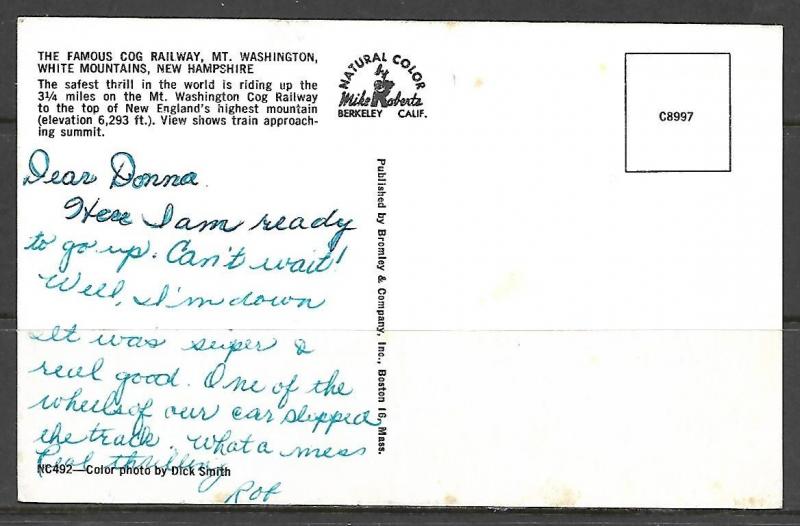 THE FAMOUS COG RAILWAY, MT. WASHINGTON,
WHITE MOUNTAINS, NEW HAMPSHIRE
The safest thrill in the world is riding up the
3¼ miles on the Mt. Washington Cog Railway
to the top of New England's highest mountain
(elevation 6,293 ft.). View shows train approach-
ing summit.
Dear Donna
Here I am ready
to go up. Can't wait!
Well, I'm down
It was super &
real good. One of the
wheels of our car slipped
the track. What a mess
Real thrilling
Rob
NC492—Color photo by Dick Smith
NATURAL COLOR
by
Mike Roberts
BERKELEY CALIF.
Published by Bromley & Company, Inc., Boston 16, Mass.
C8997